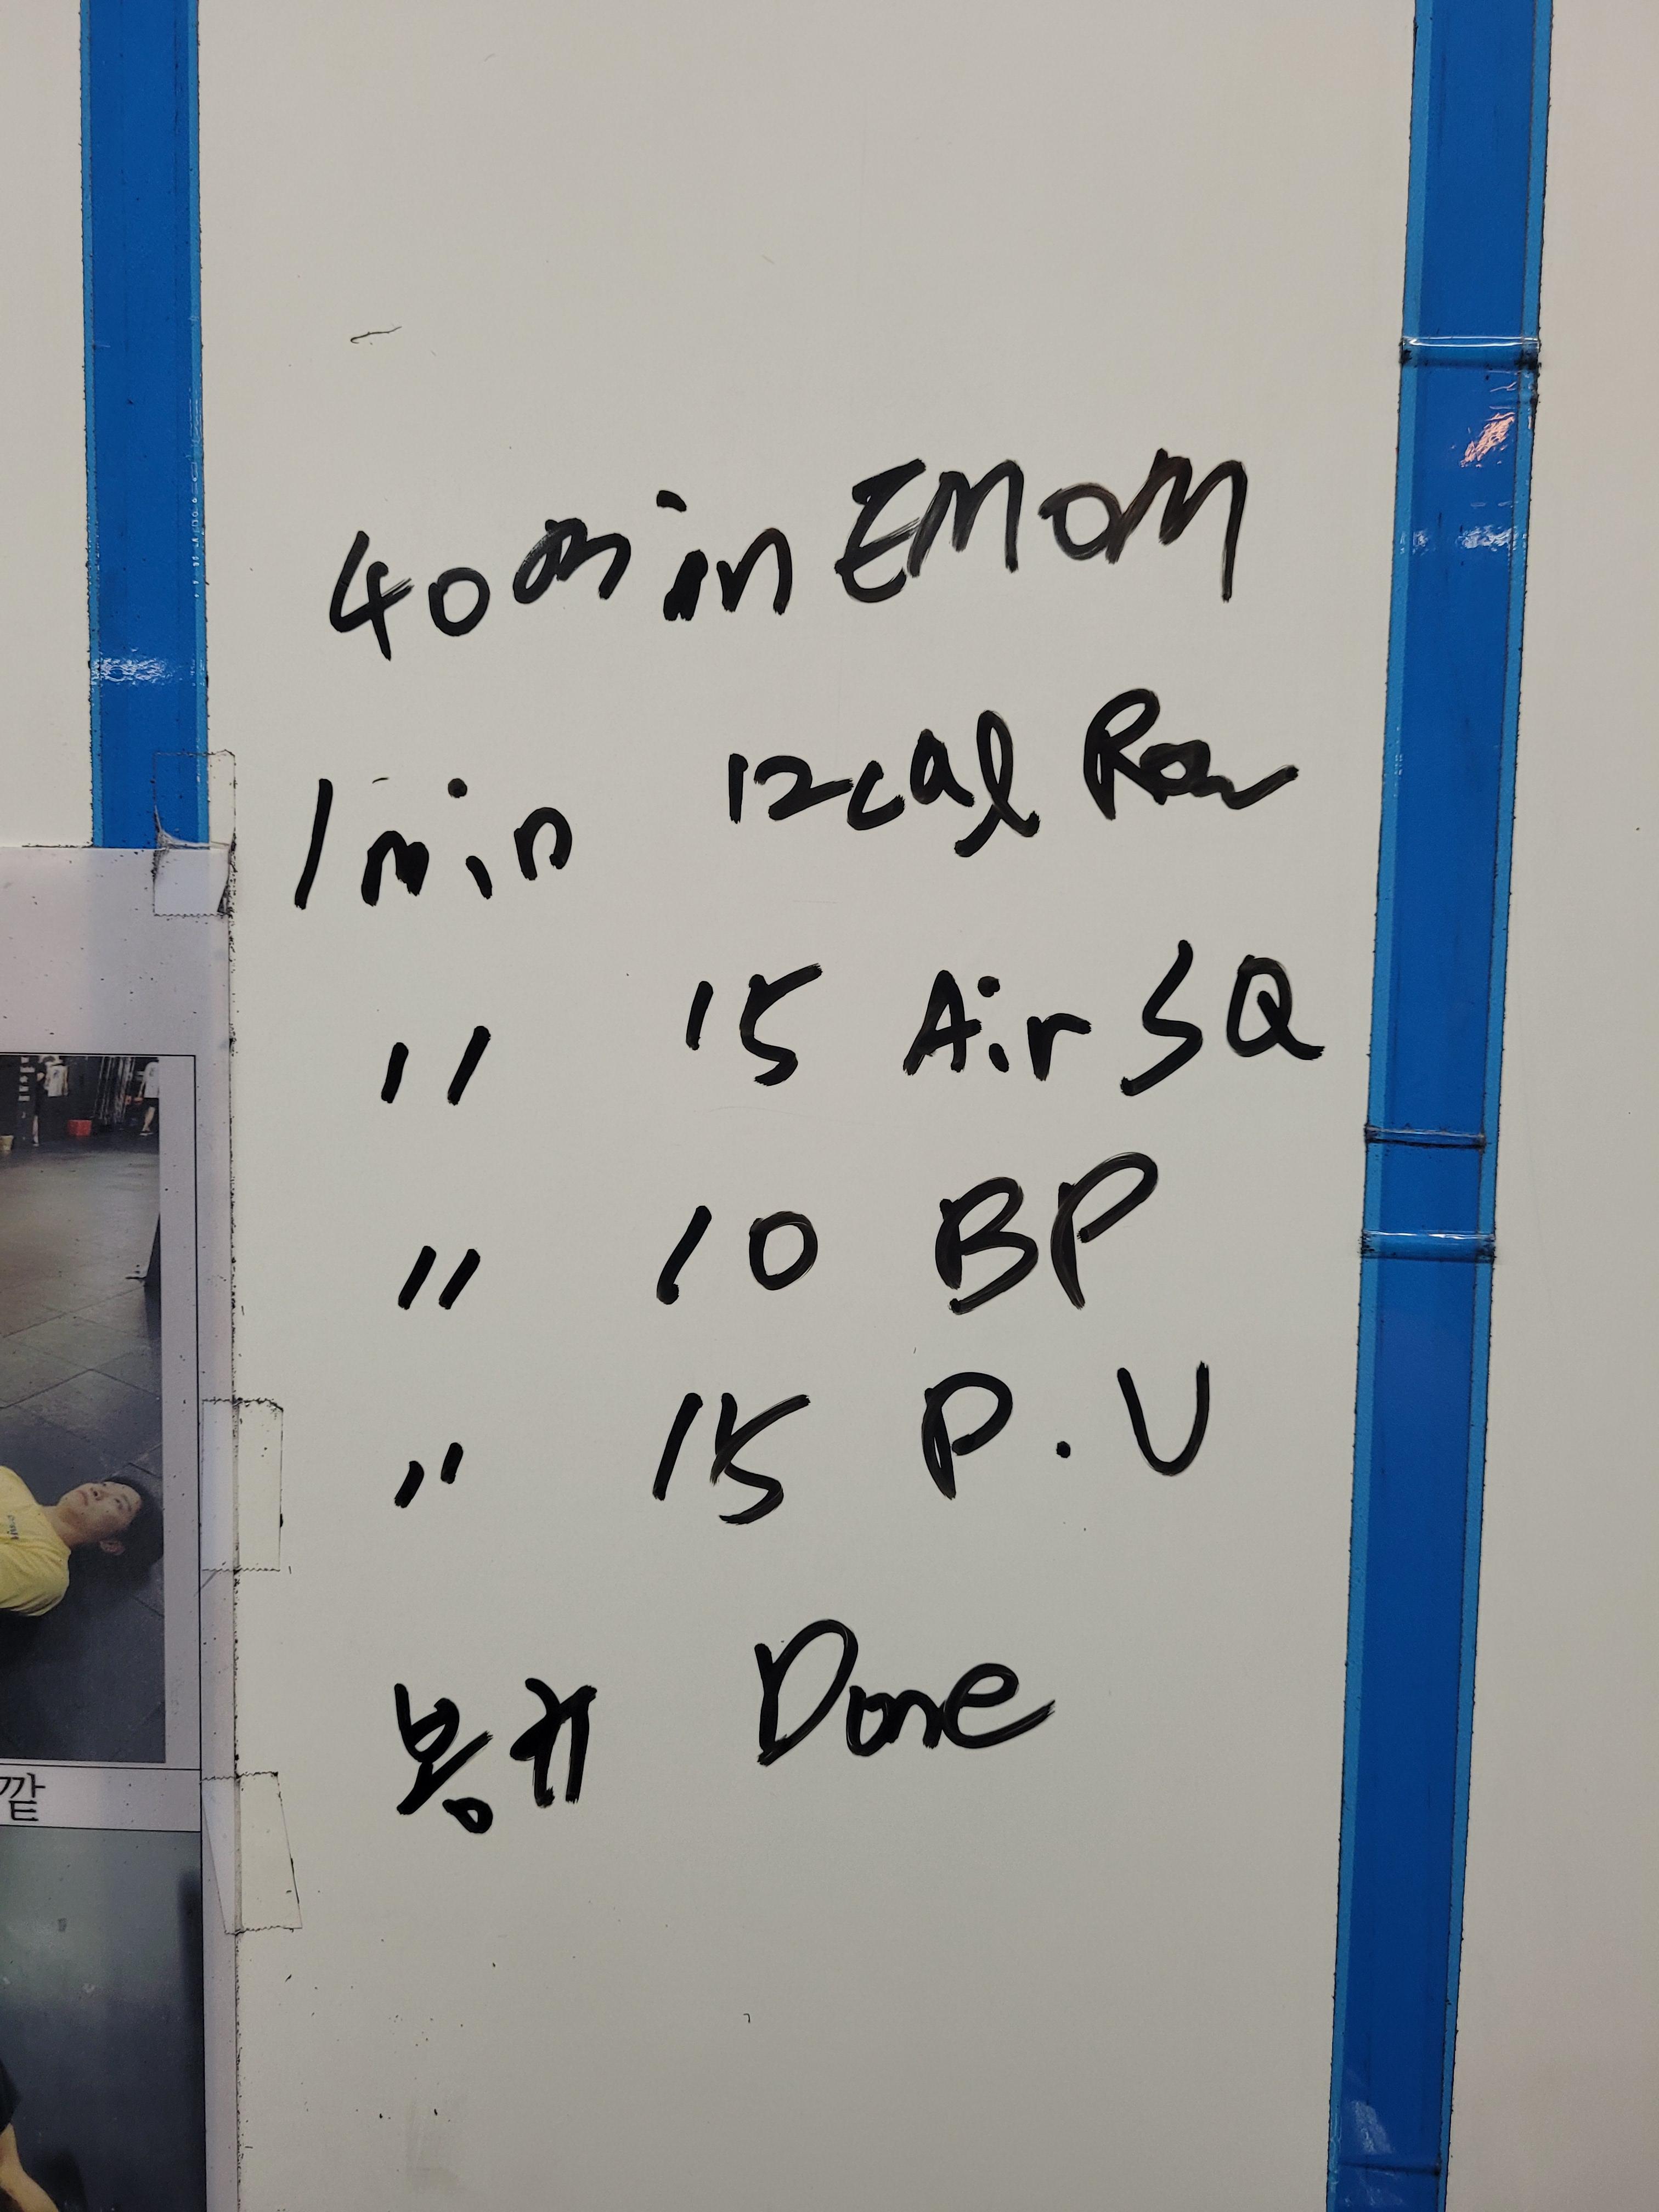 40min EMOM
1min 12cal Row
" 15 Air SQ
" 10 BP
" 15 P.U
봉규 Done
깥